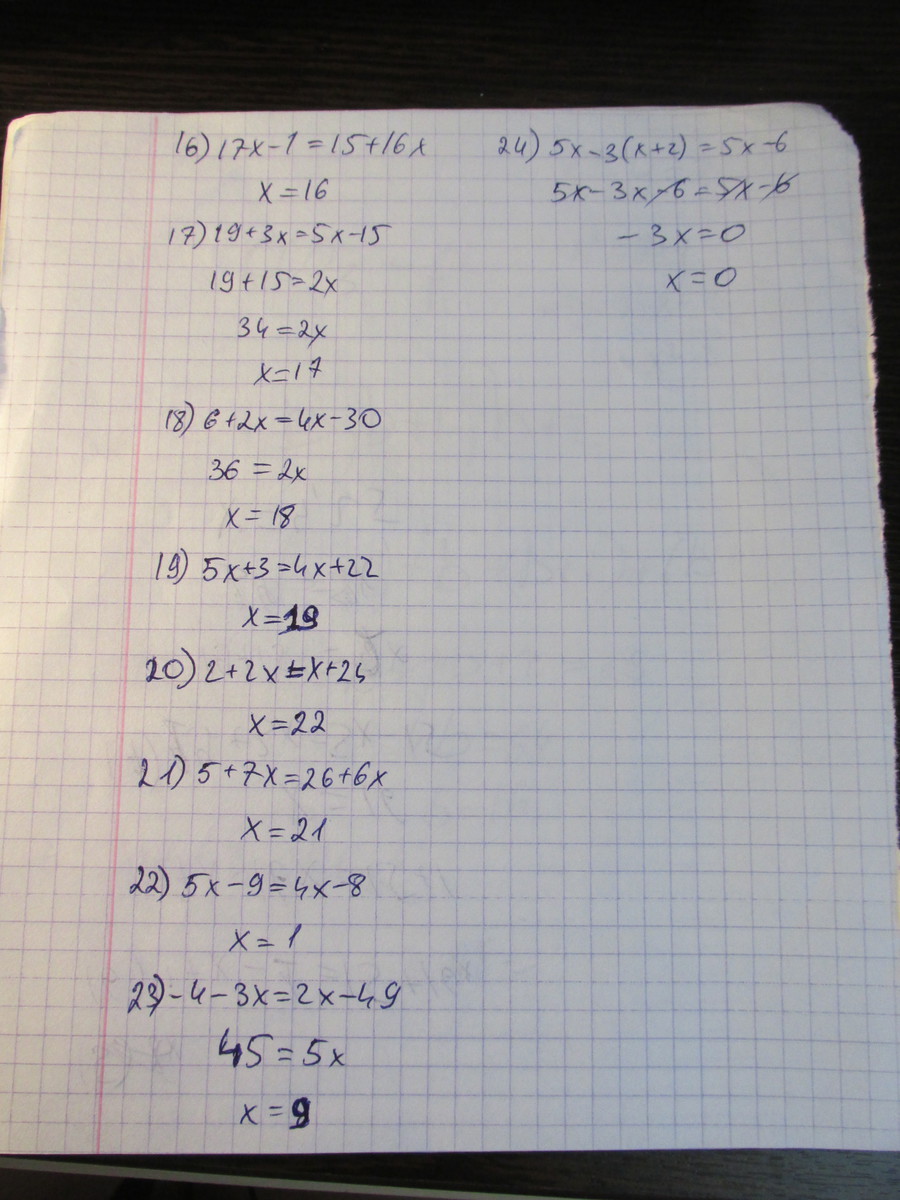 16) 17x-1=15+16x
x=16
17) 19+3x=5x-15
19+15=2x
34=2x
x=17
18) 6+2x=4x-30
36=2x
x=18
19) 5x+3=4x+22
x=19
20) 2+2x=x+24
x=22
21) 5+7x=26+6x
x=21
22) 5x-9=4x-8
x=1
23) -4-3x=2x-49
45=5x
x=9
24) 5x-3(x+2)=5x-6
5x-3x-6=5x-6
-3x=0
x=0